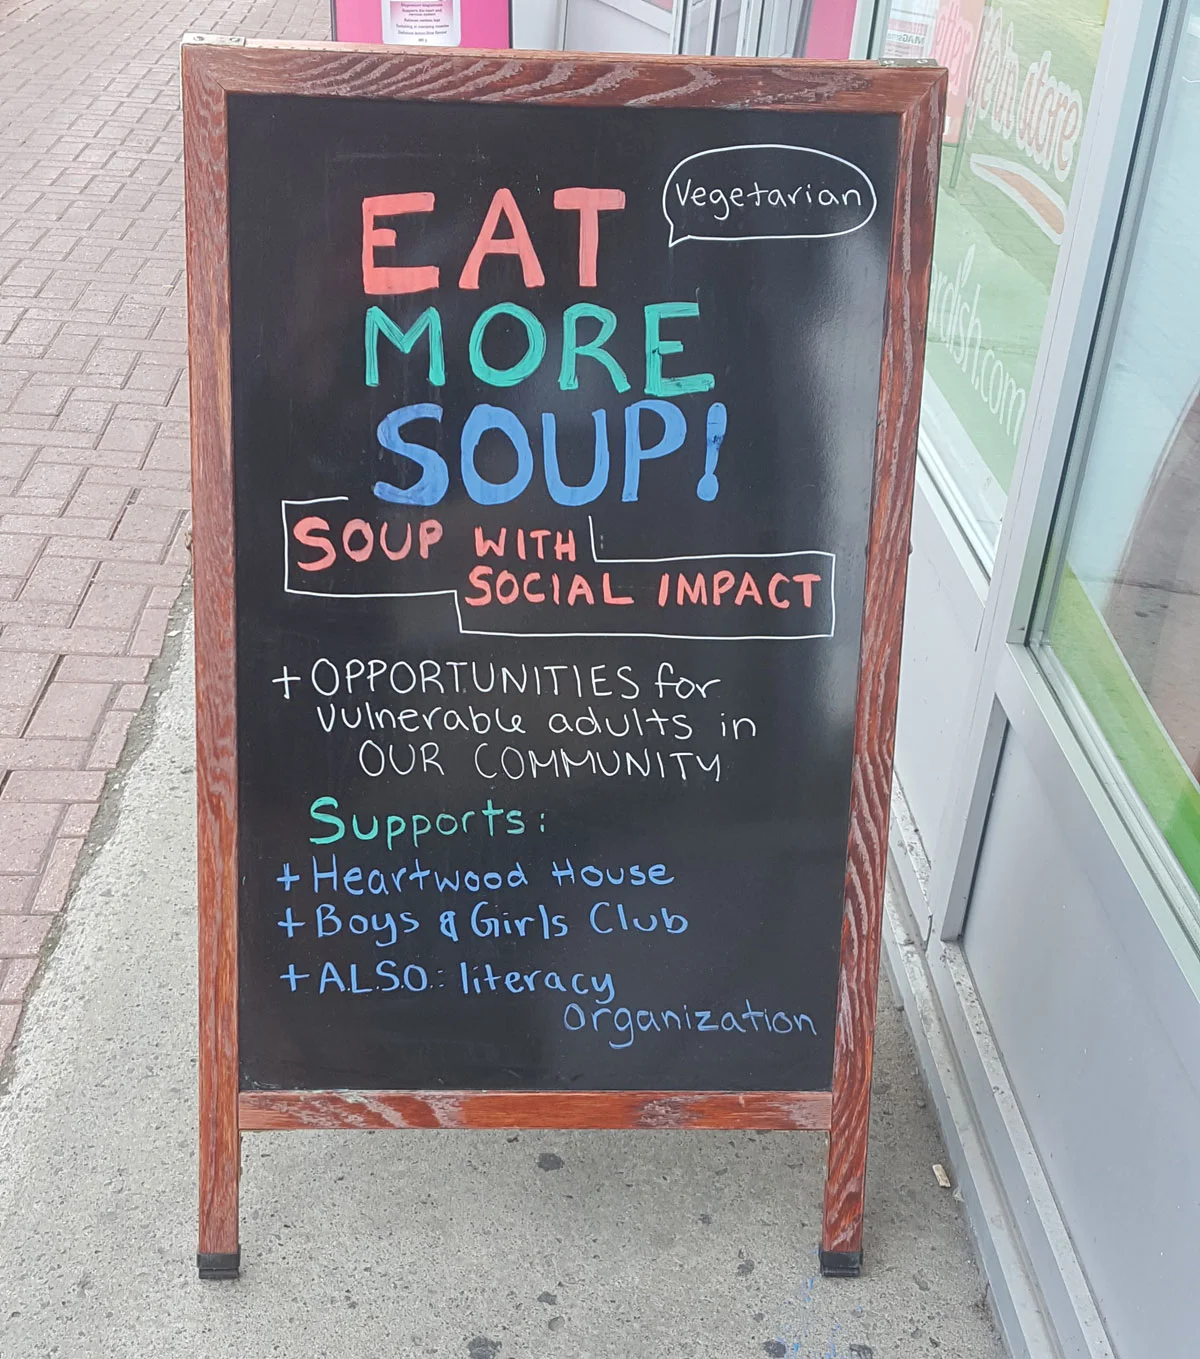 EAT
Vegetarian
MORE
SOUP!
SOUP WITH
SOCIAL IMPACT
+ OPPORTUNITIES for
vulnerable adults in
OUR COMMUNITY
Supports:
+ Heartwood House
+ Boys & Girls Club
+ A.L.S.O.: literacy
organization
store
.com